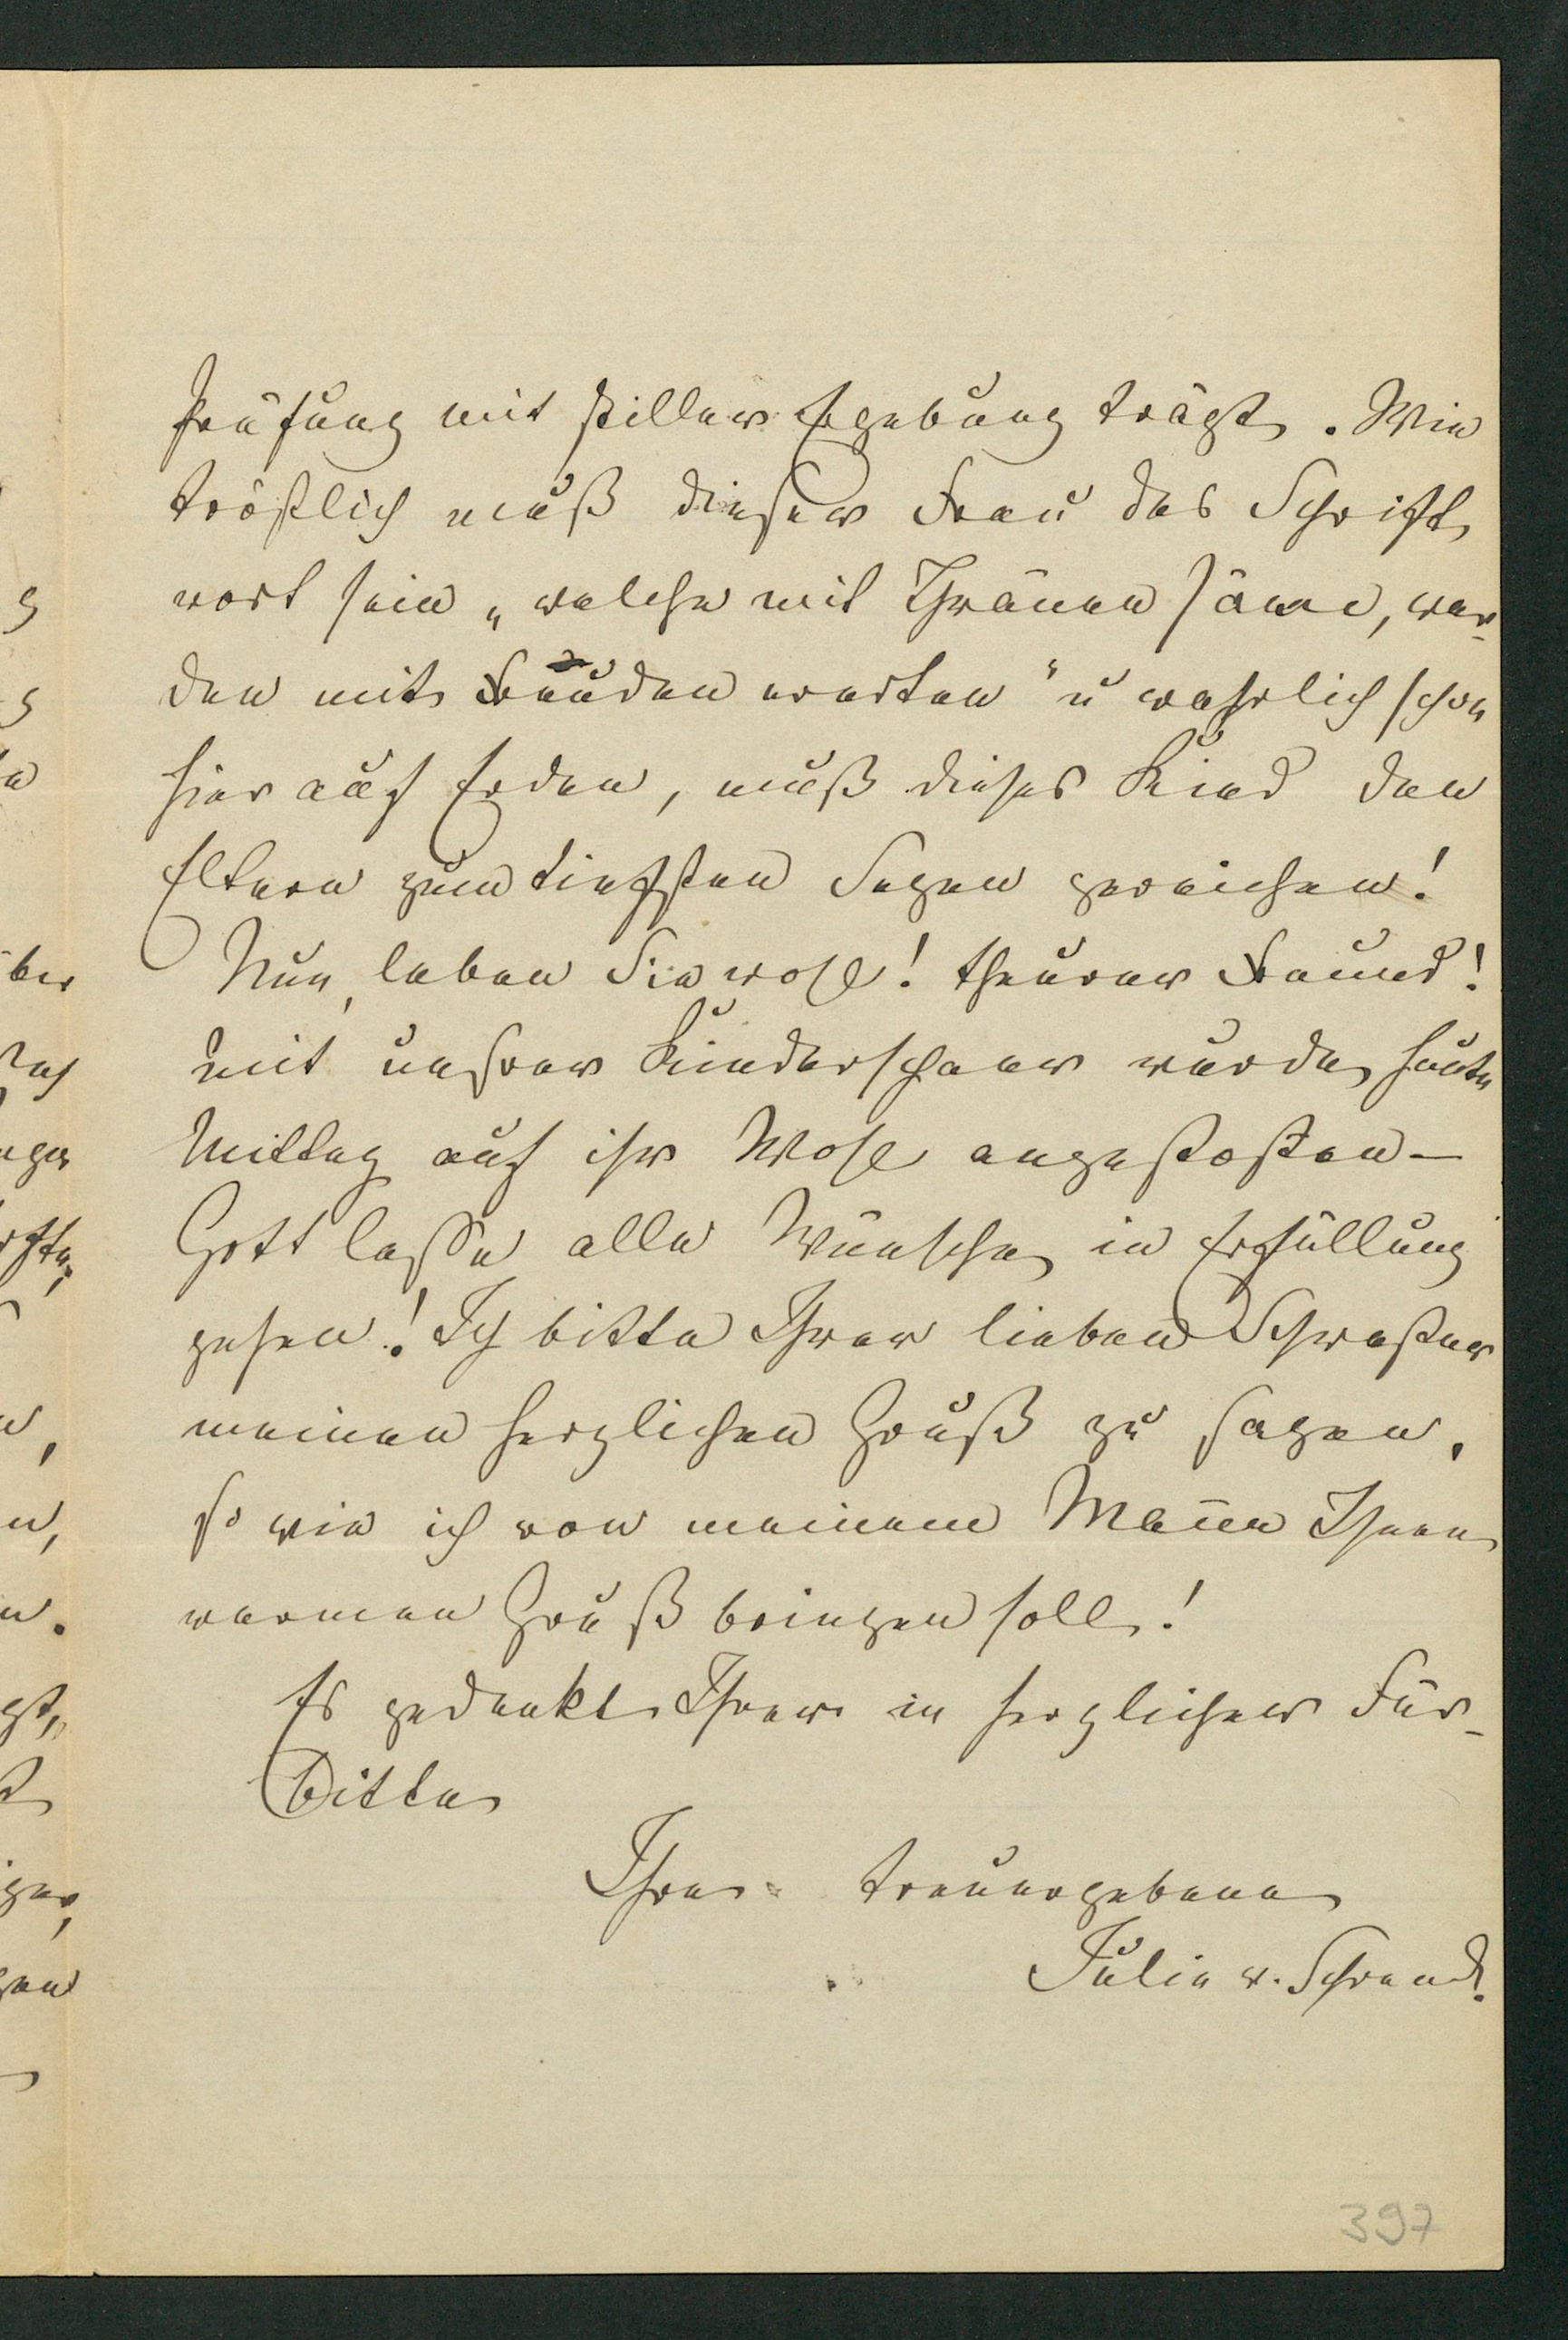 Prüfung mit stiller Ergebung trägt. Wie
tröstlich muß dieser Frau das Schrift
wort sein „welche mit Thränen säen, wer-
den mit Freuden ernten" u wahrlich schon
hier auf Erden, muß dieses Kind den
Eltern zum tiefsten Segen gereichen!
Nun, leben Sie wohl! theurer Freund!
mit unsrer Kinderschaar wurde heute
Mittag auf ihr Wohl angestoßen –
Gott lasse alle Wünsche in Erfüllung
gehen! Ich bitte Ihrer lieben Schwester
meinen herzlichen Gruß zu sagen,
so wie ich von meinem Mann Ihnen
warmen Gruß bringen soll!
Es gedenkt Ihrer in herzlicher Für-
bitte
Ihre treuergebene
Julie v. Schrenck.
397